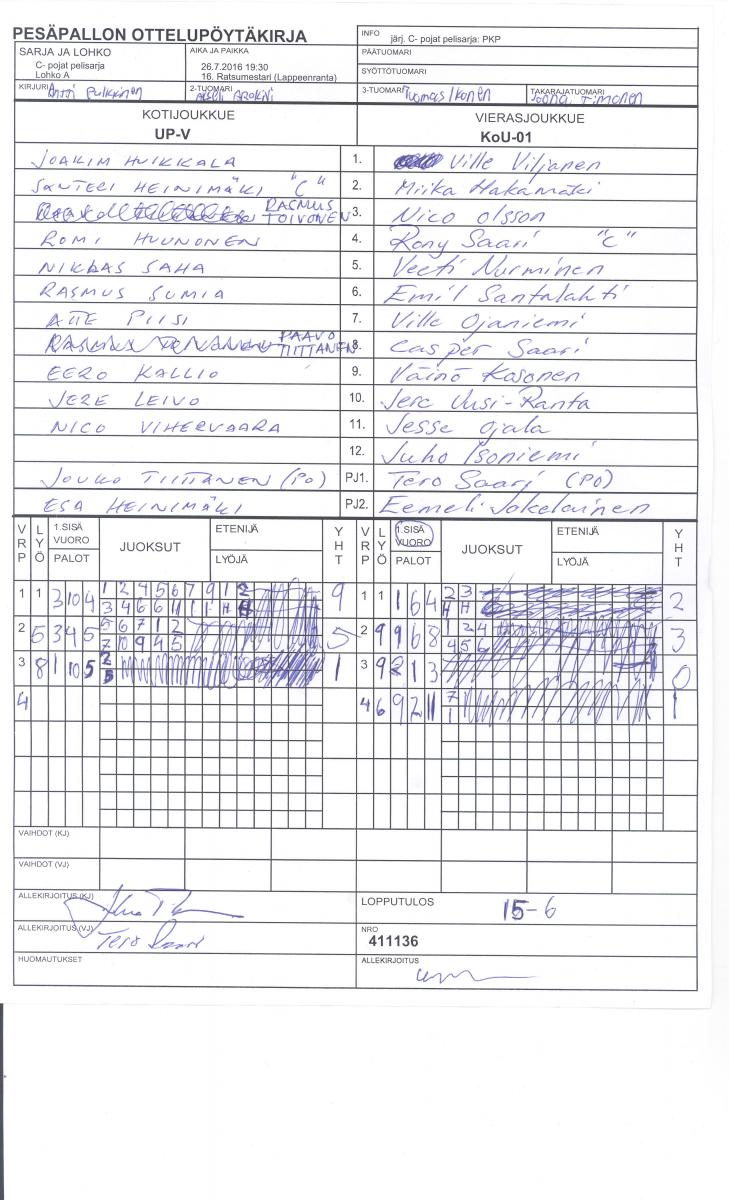 PESÄPALLON OTTELUPÖYTÄKIRJA
INFO järj. C- pojat pelisarja: PKP
SARJA JA LOHKO
C- pojat pelisarja
Lohko A
AIKA JA PAIKKA
26.7.2016 19:30
16. Ratsumestari (Lappeenranta)
PÄÄTUOMARI
SYÖTTÖTUOMARI
KIRJURI Antti Pulkkinen
2-TUOMARI
3-TUOMARI Tuomas Ikonen
TAKARAJATUOMARI Joona Timonen
KOTIJOUKKUE
UP-V
VIERASJOUKKUE
KoU-01
JOAKIM HUIKKALA 1. Ville Viljanen
SANTERI HEINIMÄKI "C" 2. Miika Hakamäki
RASMUS TOIVONEN 3. Nico Olsson
ROMI HUUNONEN 4. Rony Saari "C"
NIKLAS SAHA 5. Veeti Nurminen
RASMUS SUMIA 6. Emil Santalahti
ATTE PIISI 7. Ville Ojaniemi
PAAVO TIITTANEN 8. Casper Saari
EERO KALLIO 9. Väinö Kosonen
JERE LEIVO 10. Jere Uusi-Ranta
NICO VIHERVAARA 11. Jesse Ojala
12. Juho Isoniemi
JOUKO TIITTANEN (PO) PJ1. Tero Saari (PO)
ESA HEINIMÄKI PJ2. Eemeli Jokelainen
VRP LYÖ 1.SISÄ VUORO PALOT JUOKSUT ETENIJÄ LYÖJÄ YHT
VRP LYÖ 1.SISÄ VUORO PALOT JUOKSUT ETENIJÄ LYÖJÄ YHT
1 1 3 10 4 1 2 4 5 6 7 9 1 2 9
3 4 6 6 11 1 1 H 4
1 1 1 6 4 2 3 2
H H
2 5 3 4 5 5 6 7 1 2 5
7 10 9 4 5
2 9 9 6 8 1 2 4 3
4 5 6
3 8 1 10 5 2 1
5
3 9 2 1 3 0
4
4 6 9 2 11 7 1
1
VAIHDOT (KJ)
VAIHDOT (VJ)
ALLEKIRJOITUS (KJ)
LOPPUTULOS 15-6
ALLEKIRJOITUS (VJ) Tero Saari
NRO
411136
HUOMAUTUKSET
ALLEKIRJOITUS